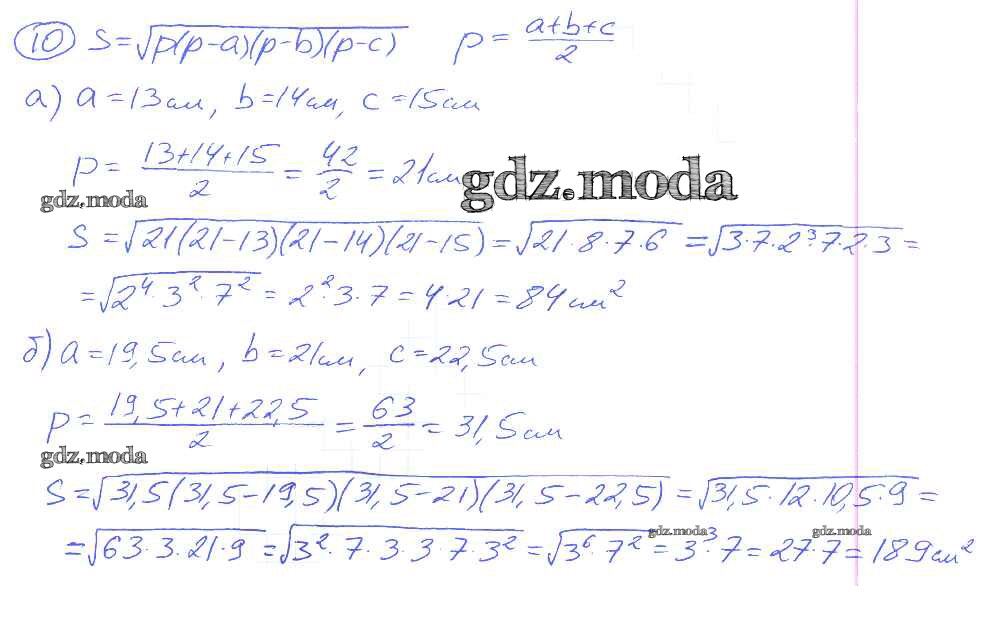 10 S=√p(p-a)(p-b)(p-c) p= a+b+c/2
а) a=13см, b=14см, c=15см
p= 13+14+15/2 = 42/2 =21см
gdz.moda
gdz.moda
S=√21(21-13)(21-14)(21-15)=√21·8·7·6 =√3·7·2³7·2·3=
=√2⁴·3²·7²=2²·3·7=4·21=84см²
б) a=19,5см, b=21см, c=22,5см
p= 19,5+21+22,5/2 = 63/2 =31,5см
gdz.moda
S=√31,5(31,5-19,5)(31,5-21)(31,5-22,5)=√31,5·12·10,5·9=
gdz.moda gdz.moda
=√63·3·21·9=√3²·7·3·3·7·3²=√3⁶·7²=3³·7=27·7=189см²